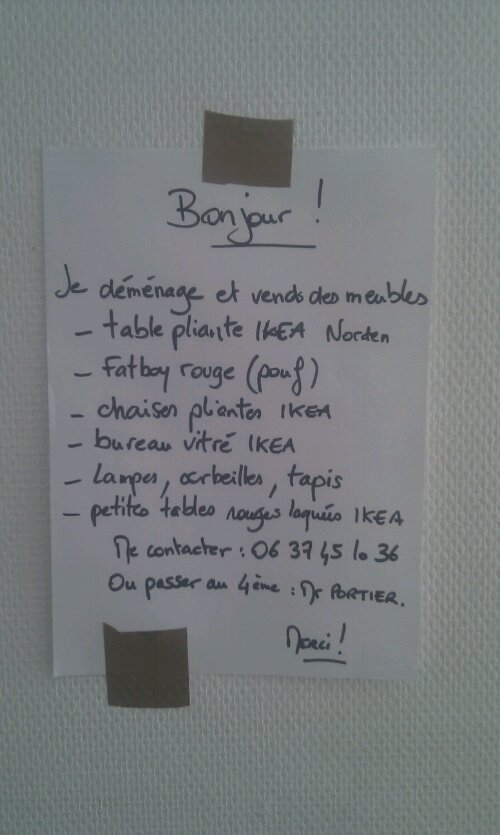 Bonjour !
Je déménage et vends des meubles
- table pliante IKEA Norden
- Fatboy rouge (pouf)
- chaises pliantes IKEA
- bureau vitré IKEA
- Lampes, corbeilles, tapis
- petites tables rouges laquées IKEA
Me contacter : 06 37 45 10 36
Ou passer au 4ème : Mr PORTIER.
Merci !